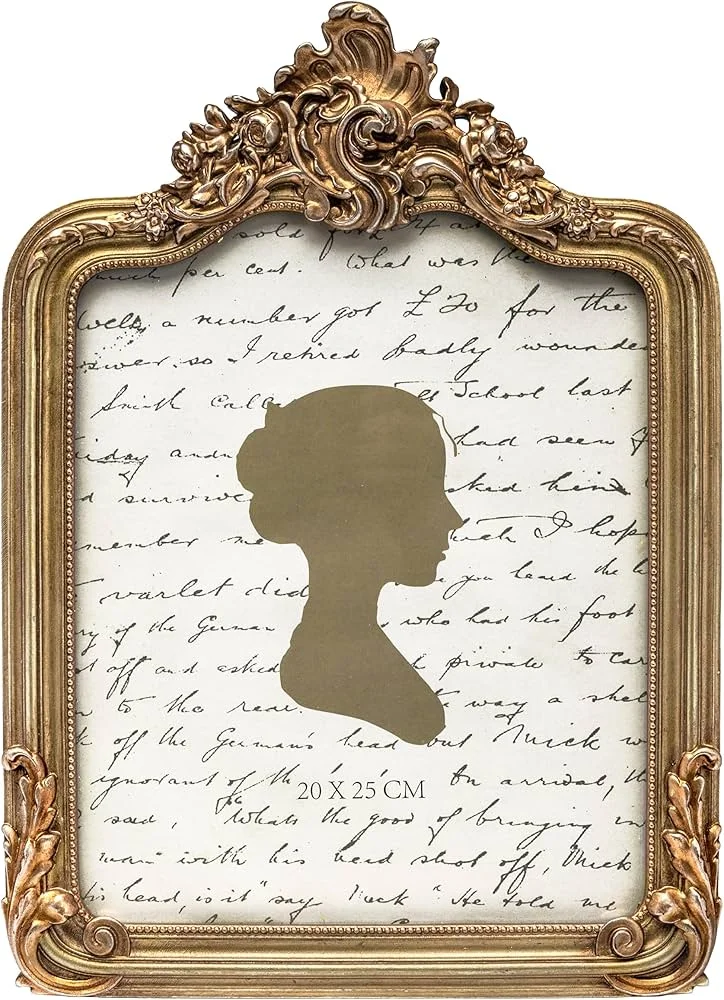 sold for 4 at
much per cent. What was the
well, a number got £20 for the
swer. so I retired badly wounde
Smith call School last
day and had seen
d survive sked him
member me which I hop
varlet did you heard the
ry of the German who had his foot
t off and asked private to car
to the rear. way a shel
k off the German's head but Mick w
ignorant of th On arrival, th
20 X 25 CM
said, "Whats the good of bringing in
man" with his head shot off, "Mick
his head, is it" say Mick "He told me